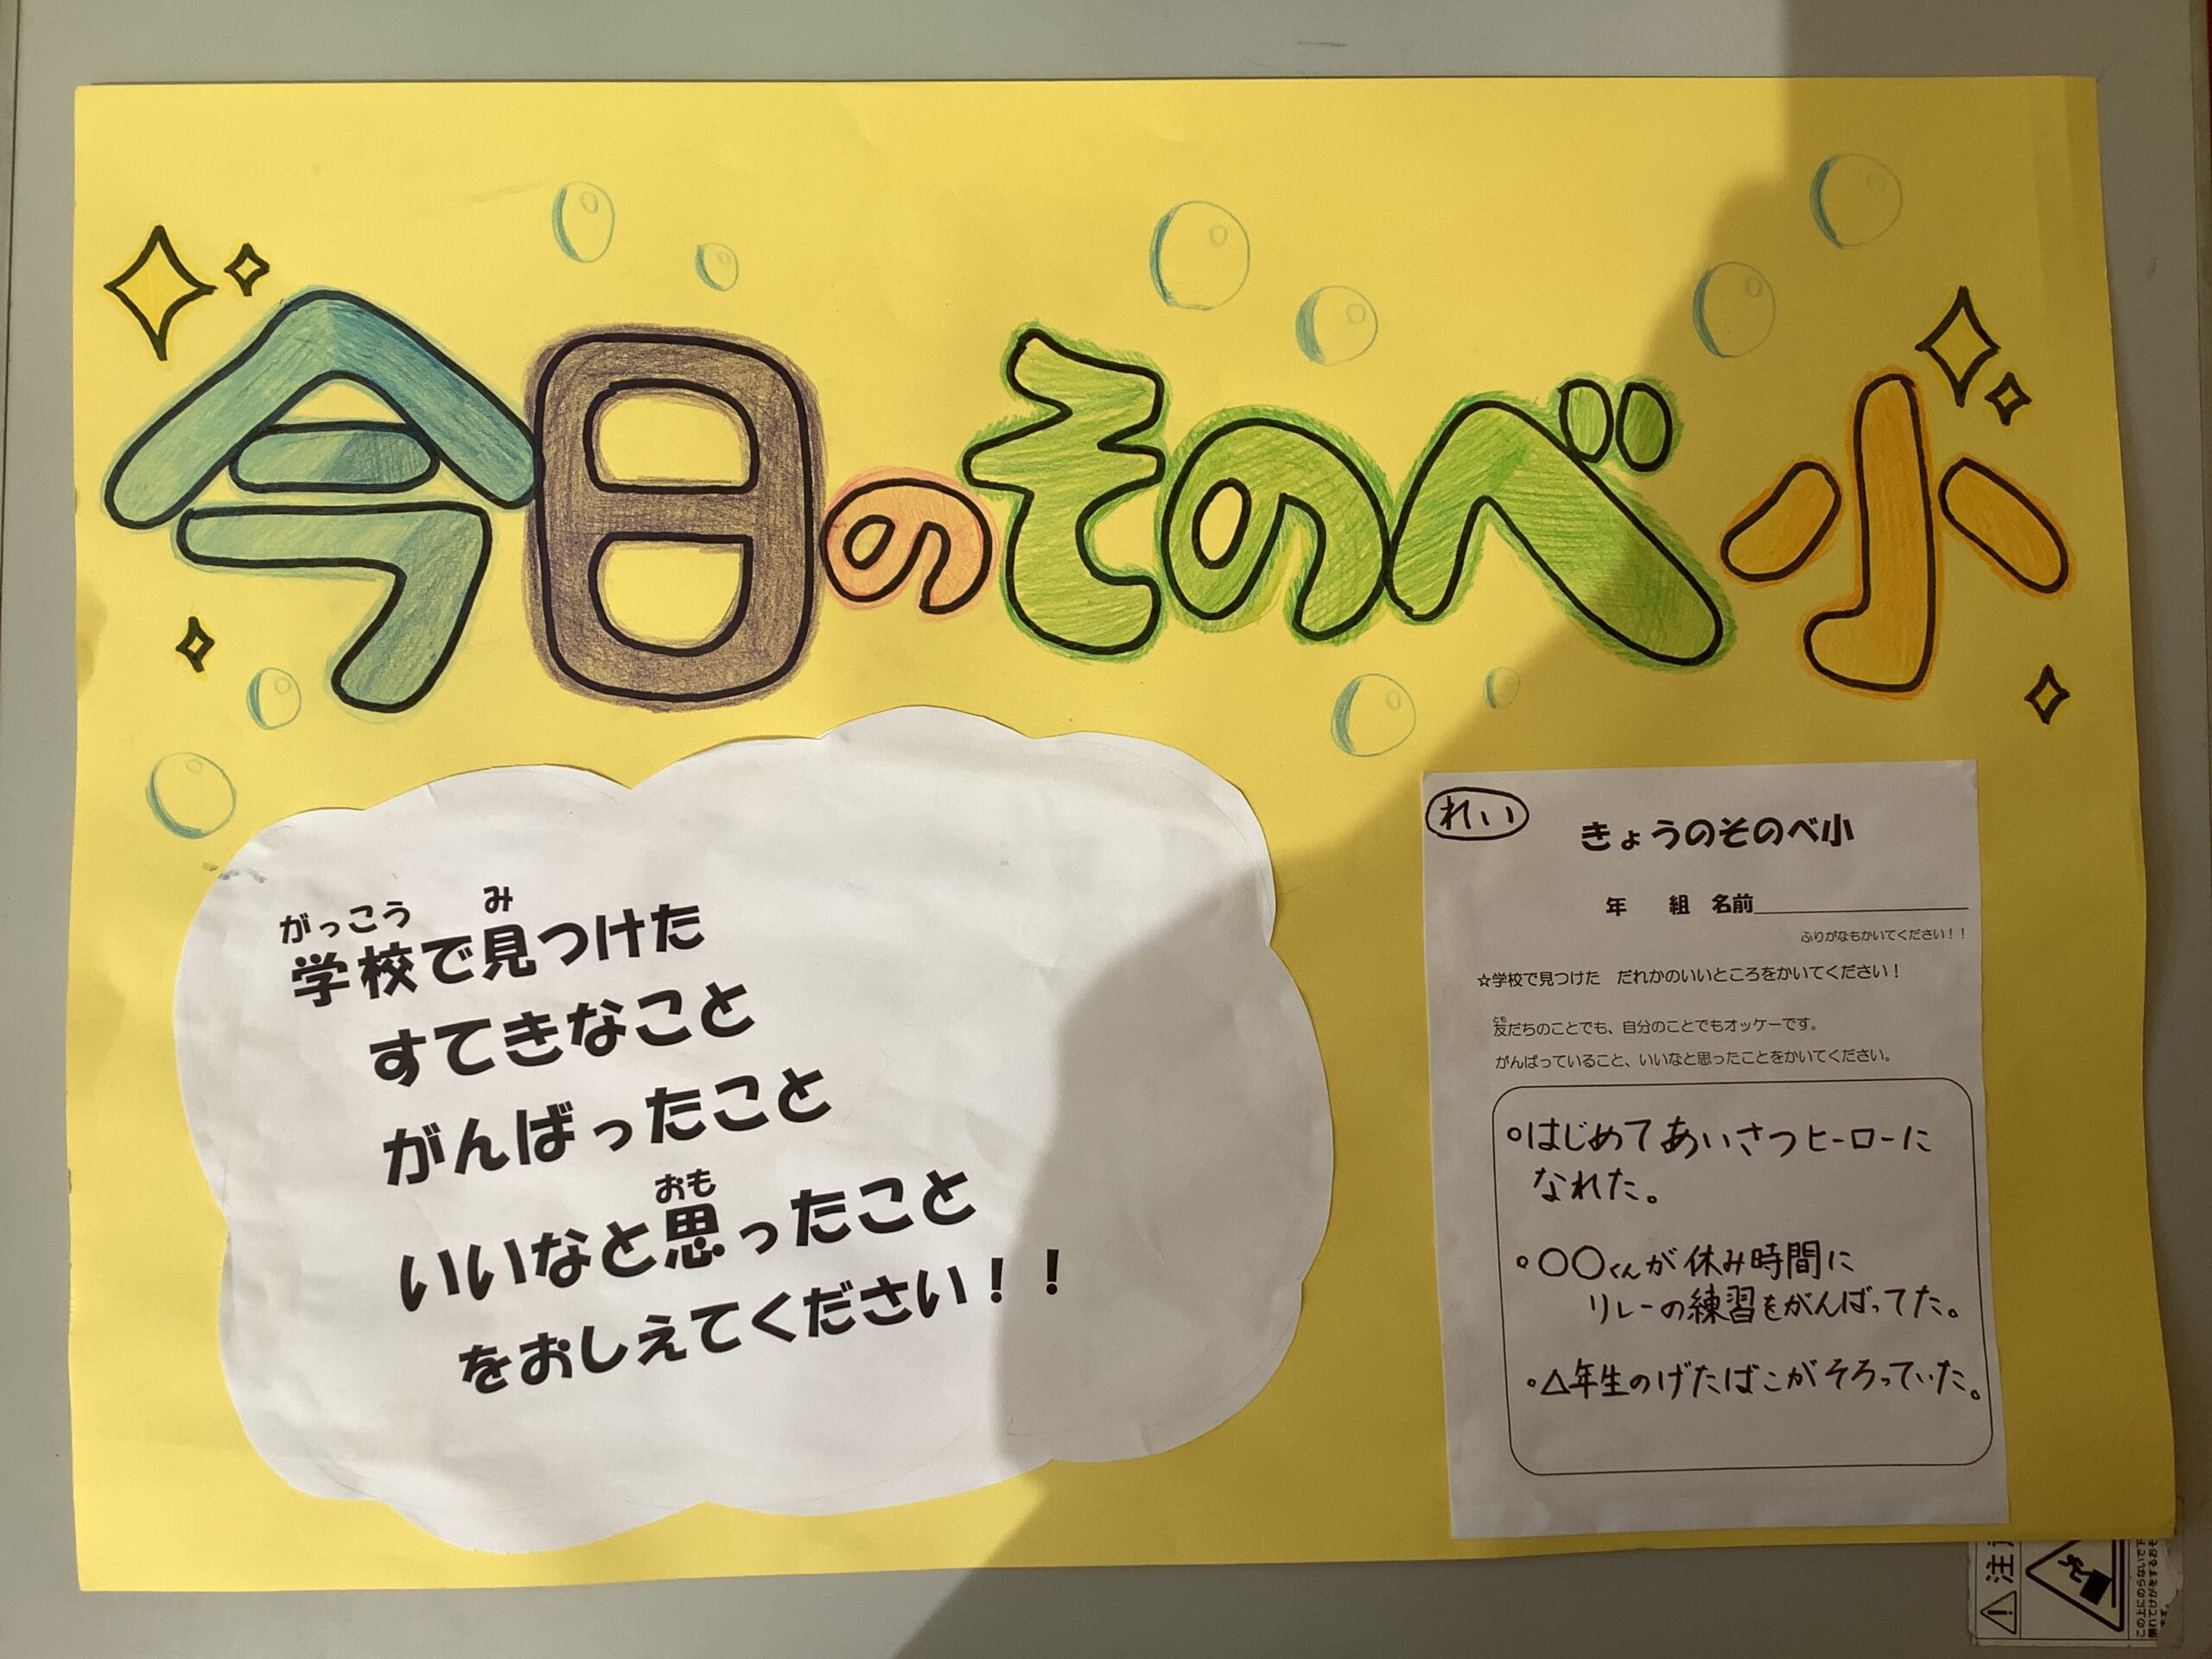 今日のそのべ小
がっこう み
学校で見つけた
すてきなこと
がんばったこと
おも
いいなと思ったこと
をおしえてください！！
れい
きょうのそのべ小
年 組 名前
ふりがなもかいてください！！
☆学校で見つけた だれかのいいところをかいてください！
とも
友だちのことでも、自分のことでもオッケーです。
がんばっていること、いいなと思ったことをかいてください。
○はじめてあいさつヒーローに
なれた。
○〇〇くんが休み時間に
リレーの練習をがんばってた。
○△年生のげたばこがそろっていた。
注